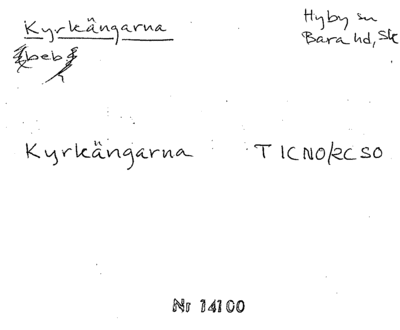 Kyrkängarna
Hyby sn
Bara hd, Sk
beb
Kyrkängarna T 1CNO/2CSO
Nr 14100